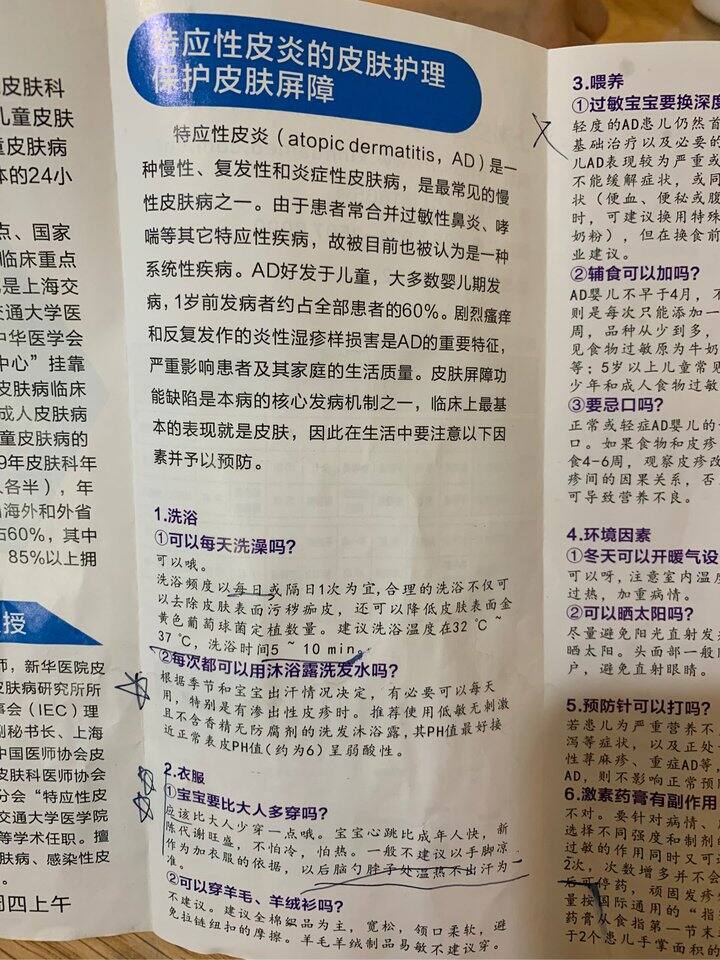 皮肤科
儿童皮肤
童皮肤病
体的24小
点、国家
临床重点
是上海交
交通大学医
中华医学会
中心”挂靠
皮肤病临床
成人皮肤病
童皮肤病的
9年皮肤科年
人各半），年
海外和外省
占60%，其中
85%以上拥
授
师，新华医院皮
皮肤病研究所所
事会（IEC）理
副秘书长、上海
中国医师协会皮
皮肤科医师协会
分会“特应性皮
交通大学医学院
等学术任职。擅
皮肤病、感染性皮
。
周四上午
特应性皮炎的皮肤护理
保护皮肤屏障
特应性皮炎（atopic dermatitis，AD）是一
种慢性、复发性和炎症性皮肤病，是最常见的慢
性皮肤病之一。由于患者常合并过敏性鼻炎、哮
喘等其它特应性疾病，故被目前也被认为是一种
系统性疾病。AD好发于儿童，大多数婴儿期发
病，1岁前发病者约占全部患者的60%。剧烈瘙痒
和反复发作的炎性湿疹样损害是AD的重要特征，
严重影响患者及其家庭的生活质量。皮肤屏障功
能缺陷是本病的核心发病机制之一，临床上最基
本的表现就是皮肤，因此在生活中要注意以下因
素并予以预防。
1.洗浴
①可以每天洗澡吗？
可以哦。
洗浴频度以每日或隔日1次为宜,合理的洗浴不仅可
以去除皮肤表面污秽痂皮，还可以降低皮肤表面金
黄色葡萄球菌定植数量。建议洗浴温度在32 ℃ ~
37 ℃，洗浴时间5 ~ 10 min。
②每次都可以用沐浴露洗发水吗？
根据季节和宝宝出汗情况决定，有必要可以每天
用，特别是有渗出性皮疹时。推荐使用低敏无刺激
且不含香精无防腐剂的洗发沐浴露,其PH值最好接
近正常表皮PH值(约为6)呈弱酸性。
2.衣服
①宝宝要比大人多穿吗？
应该比大人少穿一点哦。宝宝心跳比成年人快，新
陈代谢旺盛，不怕冷，怕热。一般不建议以手脚凉
作为加衣服的依据，以后脑勺脖子处温热不出汗为
准。
②可以穿羊毛、羊绒衫吗？
不建议。建议全棉织品为主，宽松，领口柔软，避
免拉链纽扣的摩擦。羊毛羊绒制品易敏不建议穿。
3.喂养
①过敏宝宝要换深度
轻度的AD患儿仍然首
基础治疗以及必要的
儿AD表现较为严重或
不能缓解症状，或同
状（便血、便秘或腹
时，可建议换用特殊
奶粉），但在换食前
业建议。
②辅食可以加吗？
AD婴儿不早于4月，不
则是每次只能添加一
周，品种从少到多，
见食物过敏原为牛奶
等；5岁以上儿童常见
少年和成人食物过敏
③要忌口吗？
正常或轻症AD婴儿的
口。如果食物和皮疹
食4-6周，观察皮疹改
疹间的因果关系，否
可导致营养不良。
4.环境因素
①冬天可以开暖气设
可以呀,注意室内温度
过热，加重病情。
②可以晒太阳吗？
尽量避免阳光直射发
晒太阳。头面部一般
户，避免直射眼睛。
5.预防针可以打吗？
若患儿为严重营养不
泻等症状，以及正处
性荨麻疹、重症AD等，
AD，则不影响正常预
6.激素药膏有副作用
不对。要针对病情、
选择不同强度和制剂的
过敏的作用同时又可
2次，次数增多并不会
后可停药，顽固发疹
量按国际通用的“指
药膏从食指第一节末
于2个患儿手掌面积的